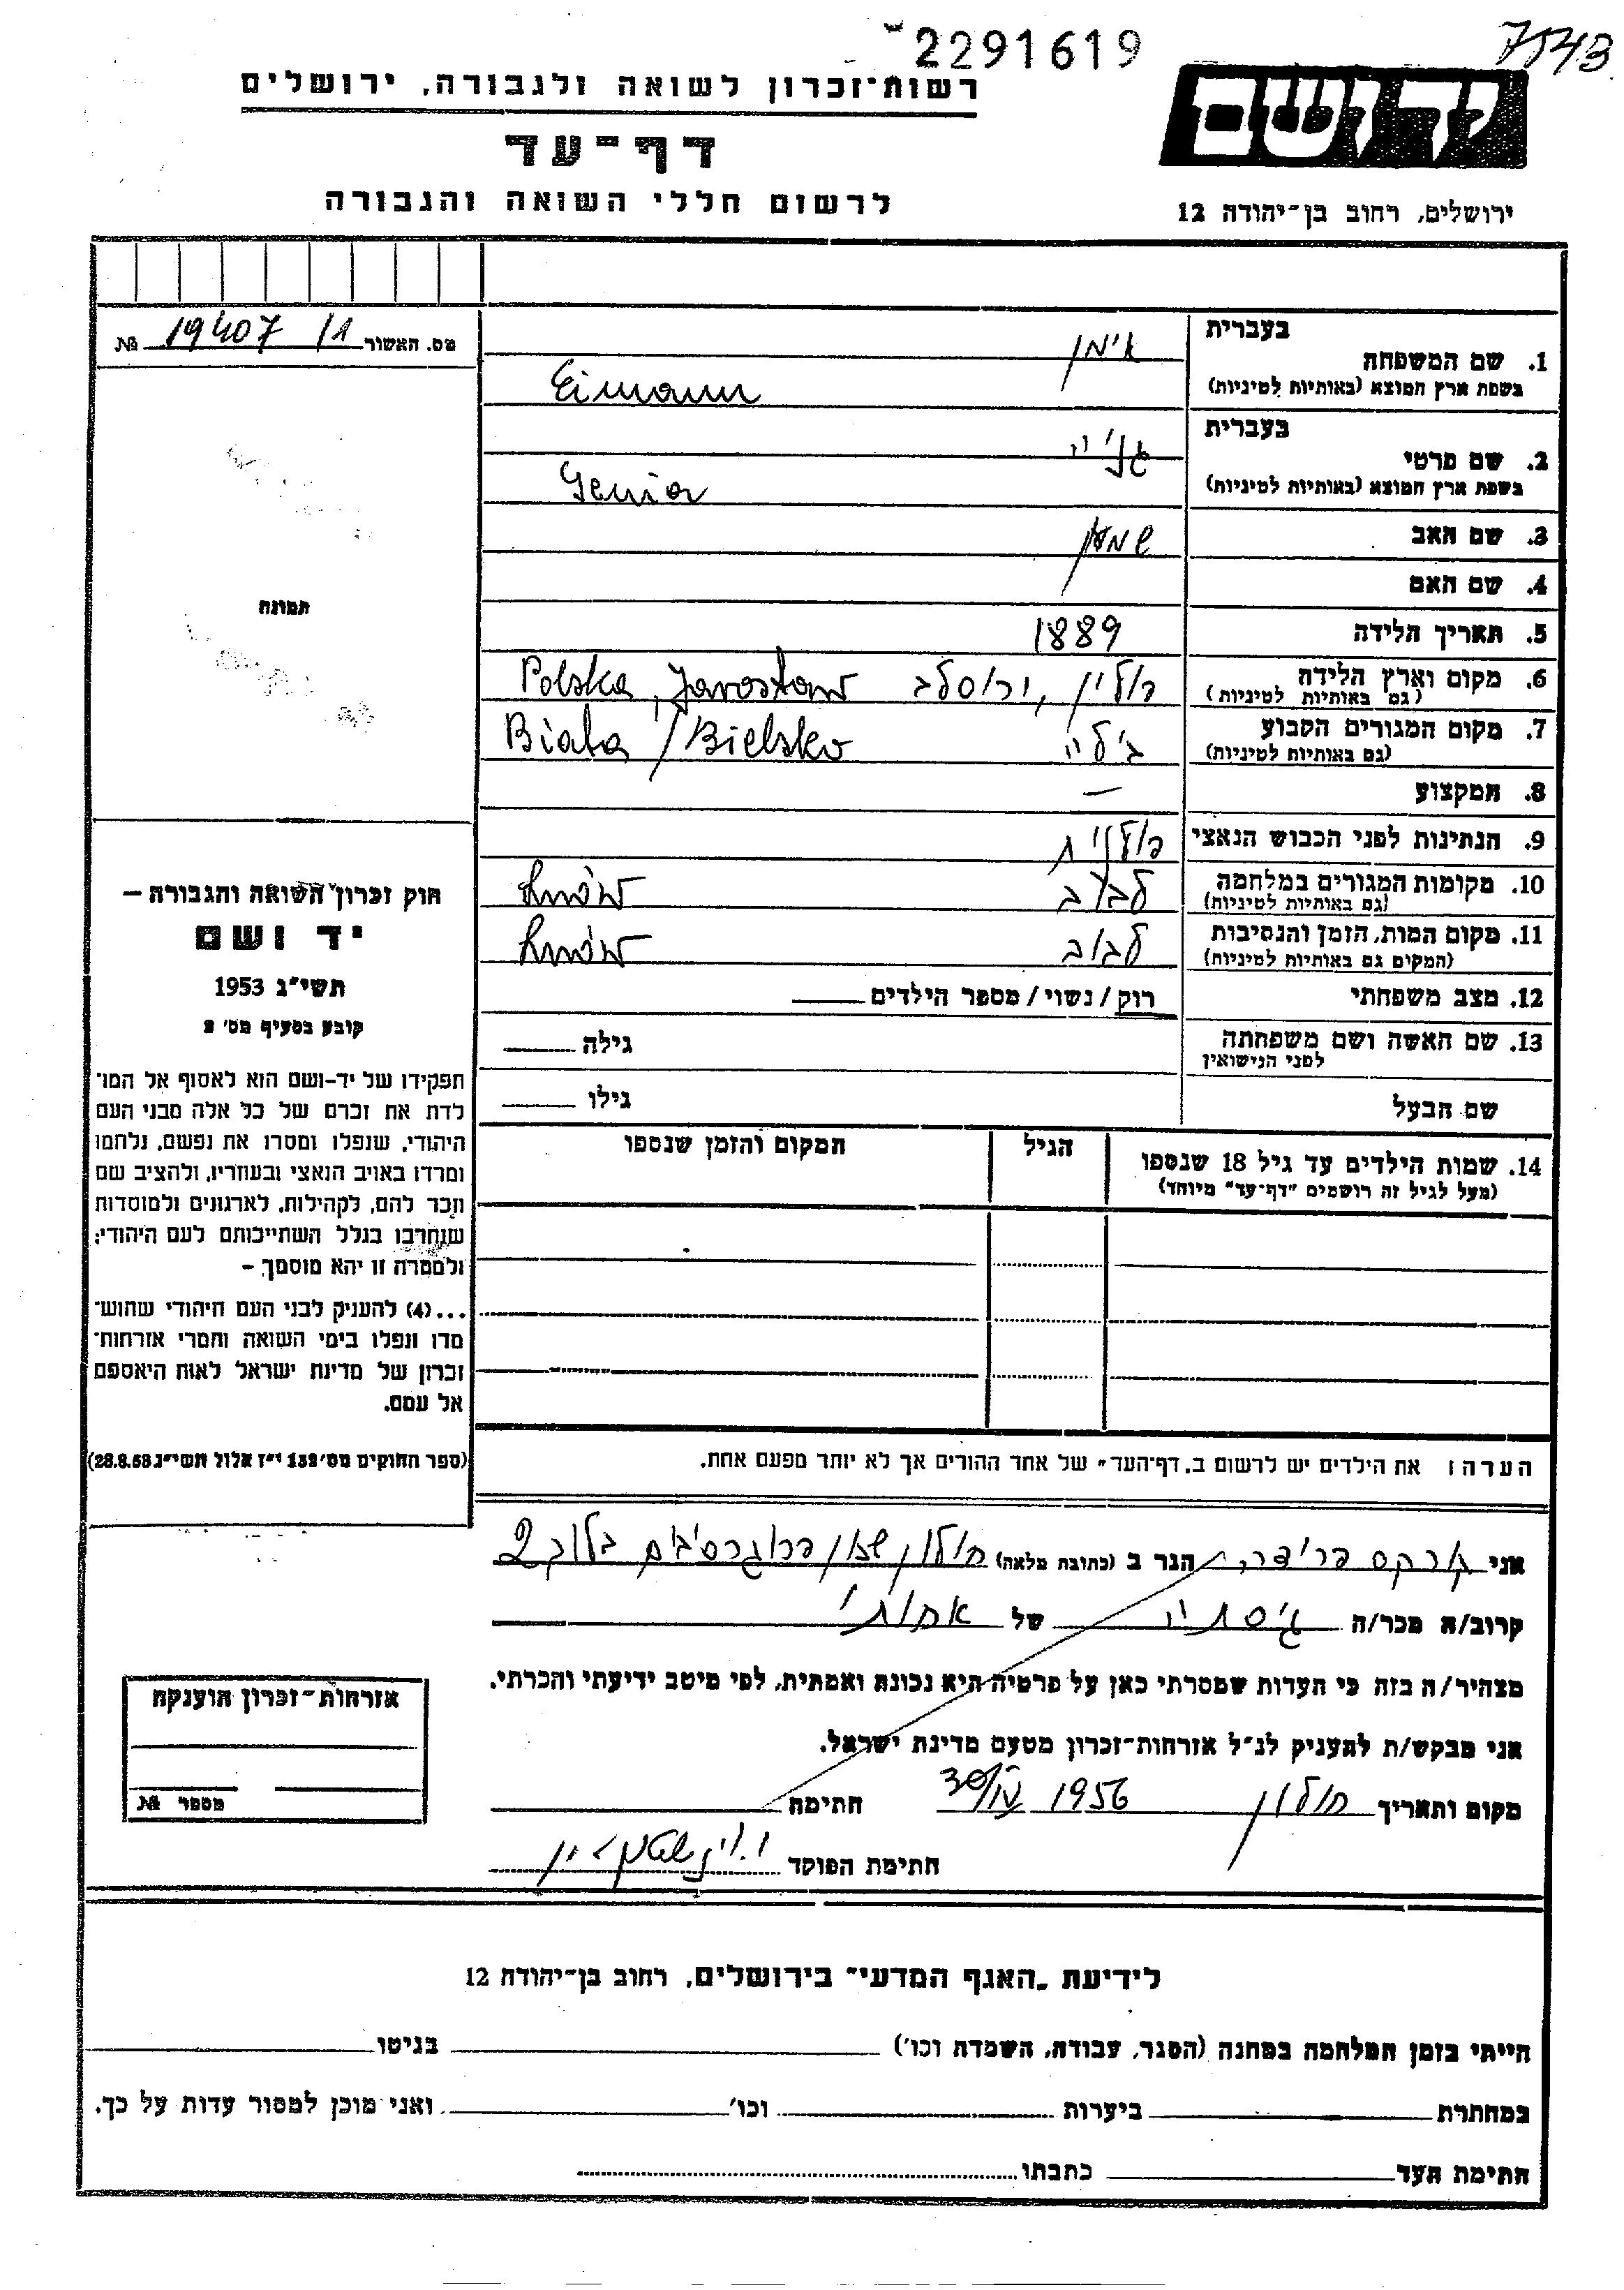 2291619
7543
רשות־זכרון לשואה ולגבורה, ירושלים
דף־עד
לרשום חללי השואה והגבורה
ידושם
ירושלים, רחוב בן־יהודה 12
מס. האשור 19407/1 №
תמונה
חוק זכרון השואה והגבורה –
יד ושם
תשי״ג 1953
קובע בסעיף מס׳ 2
תפקידו של יד-ושם הוא לאסוף אל המו־
לדת את זכרם של כל אלה מבני העם
היהודי, שנפלו ומסרו את נפשם, נלחמו
ומרדו באויב הנאצי ובעוזריו, ולהציב שם
וזכר להם, לקהילות, לארגונים ולמוסדות
שנחרבו בגלל השתייכותם לעם היהודי;
ולמטרה זו יהא מוסמך –
...(4) להעניק לבני העם היהודי שהוש־
מדו ונפלו בימי השואה והמרי אזרחות־
זכרון של מדינת ישראל לאות היאספם
אל עמם.
(ספר החוקים מס׳ 132 י״ז אלול תשי״ג 28.8.53)
בעברית איימן
1. שם המשפחה
בשפת ארץ המוצא (באותיות לטיניות) Eimann
בעברית גניה
2. שם פרטי
בשפת ארץ המוצא (באותיות לטיניות) Genia
3. שם האב שמעון
4. שם האם
5. תאריך הלידה 1889
6. מקום וארץ הלידה פולין, ירוסלב Polska, Jarosław
(גם באותיות לטיניות)
7. מקום המגורים הקבוע ביליה Biała / Bielsko
(גם באותיות לטיניות)
8. המקצוע —
9. הנתינות לפני הכבוש הנאצי פולנית
10. מקומות המגורים במלחמה לבוב Lwów
(גם באותיות לטיניות)
11. מקום המות, הזמן והנסיבות לבוב Lwów
(המקום גם באותיות לטיניות)
12. מצב משפחתי רוק / נשוי / מספר הילדים
13. שם האשה ושם משפחתה גילה
לפני הנישואין
שם הבעל גילו
14. שמות הילדים עד גיל 18 שנספו הגיל המקום והזמן שנספו
(מעל לגיל זה רושמים "דף־עד" מיוחד)
הערה: את הילדים יש לרשום ב„דף־העד״ של אחד ההורים אך לא יותר מפעם אחת.
אני פרידה הגר ב (כתובת מלאה) חולון שכון פרוגרסיבים בלוק 2
קרוב/ה מכר/ה גיסתי של אחותי
מצהיר/ה בזה כי העדות שמסרתי כאן על פרטיה היא נכונה ואמתית, לפי מיטב ידיעתי והכרתי.
אני מבקש/ת להעניק לנ״ל אזרחות־זכרון מטעם מדינת ישראל.
מקום ותאריך חולון 30/IV 1956 חתימה
חתימת הפוקד
אזרחות־זכרון הוענקה
מספר №
לידיעת „האגף המדעי״ בירושלים, רחוב בן־יהודה 12
הייתי בזמן המלחמה במחנה (הסגר, עבודה, השמדה וכו׳) בגיטו
במחתרת ביערות וכו׳ ואני מוכן למסור עדות על כך.
חתימת העד כתבתו